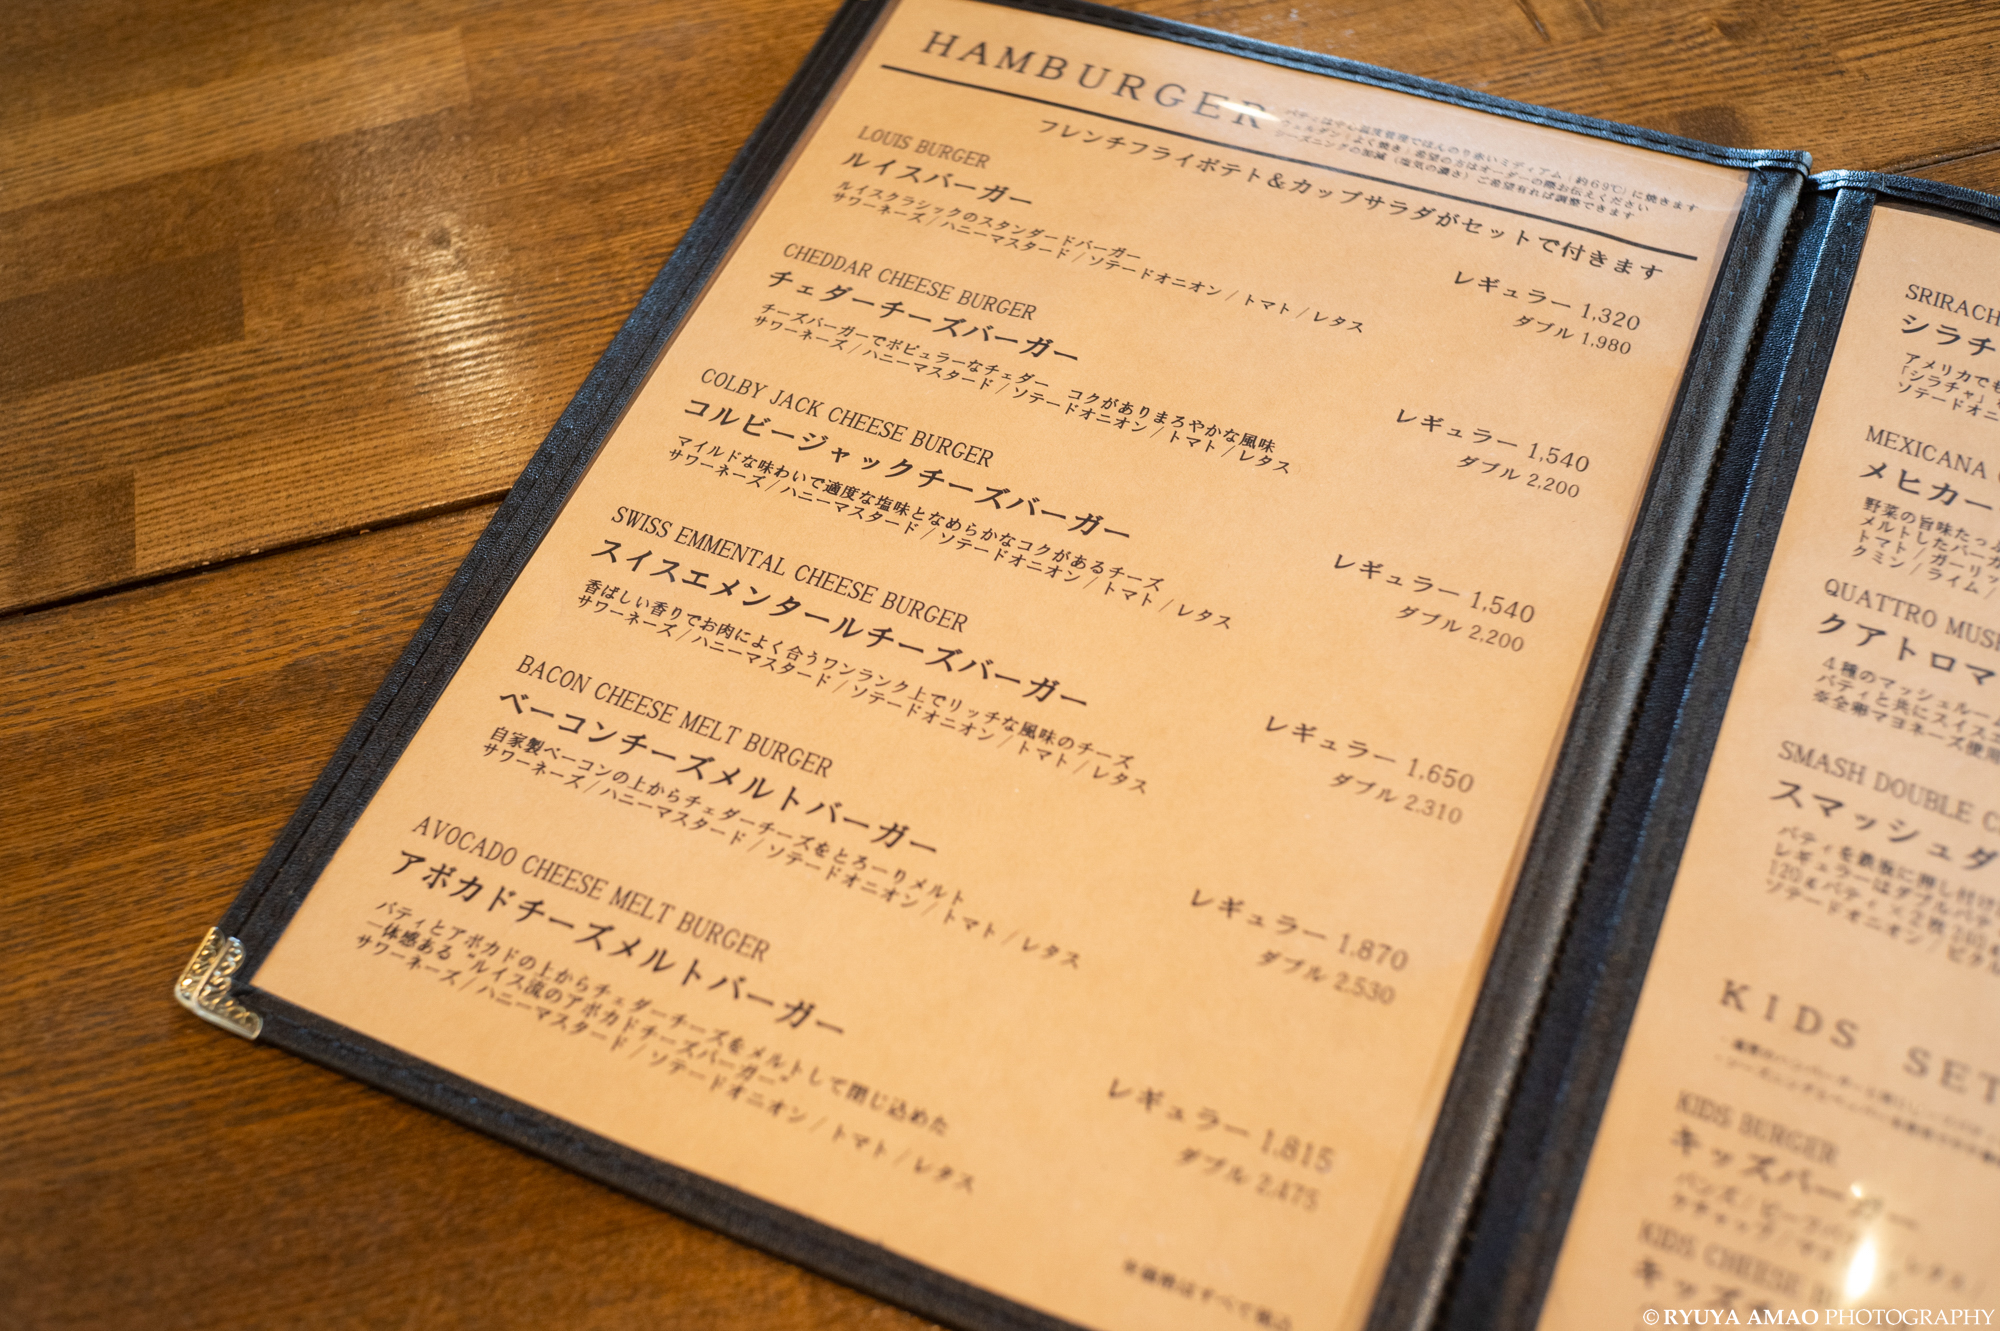 HAMBURGER
パティは中心温度管理でほんのり赤いミディアム(約69℃)に焼きます
ウェルダン(よく焼き)希望の方はオーダーの際お伝えください
シーズニングの加減(塩気の濃さ)ご希望有れば調整できます
フレンチフライポテト&カップサラダがセットで付きます
LOUIS BURGER
ルイスバーガー
ルイスクラシックのスタンダードバーガー
サワーネーズ/ハニーマスタード/ソテードオニオン/トマト/レタス
レギュラー 1,320
ダブル 1,980
CHEDDAR CHEESE BURGER
チェダーチーズバーガー
チーズバーガーでポピュラーなチェダー コクがありまろやかな風味
サワーネーズ/ハニーマスタード/ソテードオニオン/トマト/レタス
レギュラー 1,540
ダブル 2,200
COLBY JACK CHEESE BURGER
コルビージャックチーズバーガー
マイルドな味わいで適度な塩味となめらかなコクがあるチーズ
サワーネーズ/ハニーマスタード/ソテードオニオン/トマト/レタス
レギュラー 1,540
ダブル 2,200
SWISS EMMENTAL CHEESE BURGER
スイスエメンタールチーズバーガー
香ばしい香りでお肉によく合うワンランク上でリッチな風味のチーズ
サワーネーズ/ハニーマスタード/ソテードオニオン/トマト/レタス
レギュラー 1,650
ダブル 2,310
BACON CHEESE MELT BURGER
ベーコンチーズメルトバーガー
自家製ベーコンの上からチェダーチーズをとろーりメルト
サワーネーズ/ハニーマスタード/ソテードオニオン/トマト/レタス
レギュラー 1,870
ダブル 2,530
AVOCADO CHEESE MELT BURGER
アボカドチーズメルトバーガー
パティとアボカドの上からチェダーチーズをメルトして閉じ込めた
一体感ある "ルイス流のアボカドチーズバーガー"
サワーネーズ/ハニーマスタード/ソテードオニオン/トマト/レタス
レギュラー 1,815
ダブル 2,475
SRIRACH
シラチ
アメリカでも
「シラチャ」
ソテードオニ
MEXICANA
メヒカー
野菜の旨味たっぷ
メルトしたバーガ
トマト/ガーリッ
クミン/ライム/
QUATTRO MUSH
クアトロマ
4種のマッシュルーム
パティと共にスイスエ
※全卵マヨネーズ使用
SMASH DOUBLE C
スマッシュダ
パティを鉄板に押し付け
レギュラーはダブルパテ
120gパティ×2枚
ソテードオニオン/ピクル
KIDS SET
KIDS BURGER
キッズバーガー
KIDS CHEESE
キッズ
© RYUYA AMAO PHOTOGRAPHY